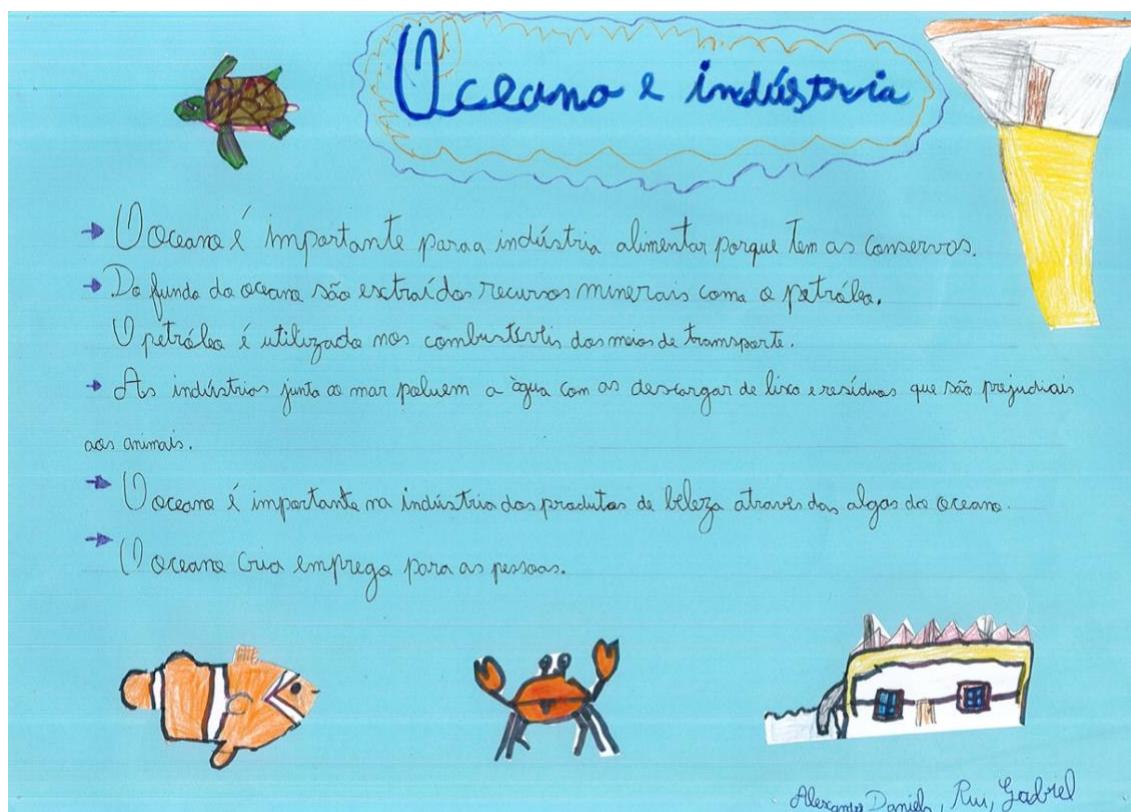 Oceano e indústria
O oceano é importante para a indústria alimentar porque tem as conservas.
Do fundo do oceano são extraídos recursos minerais como o petróleo.
O petróleo é utilizado nos combustívtis dos meios de transporte.
As indústrias junto ao mar poluem a àgua com as descargar de lixo e resíduos que são prejudiais
aos animais.
O oceano é importante na indústria dos produtos de beleza através das algas do oceano.
O oceano cria emprego para as pessoas.
Alexandre Daniel, Rui, Gabriel